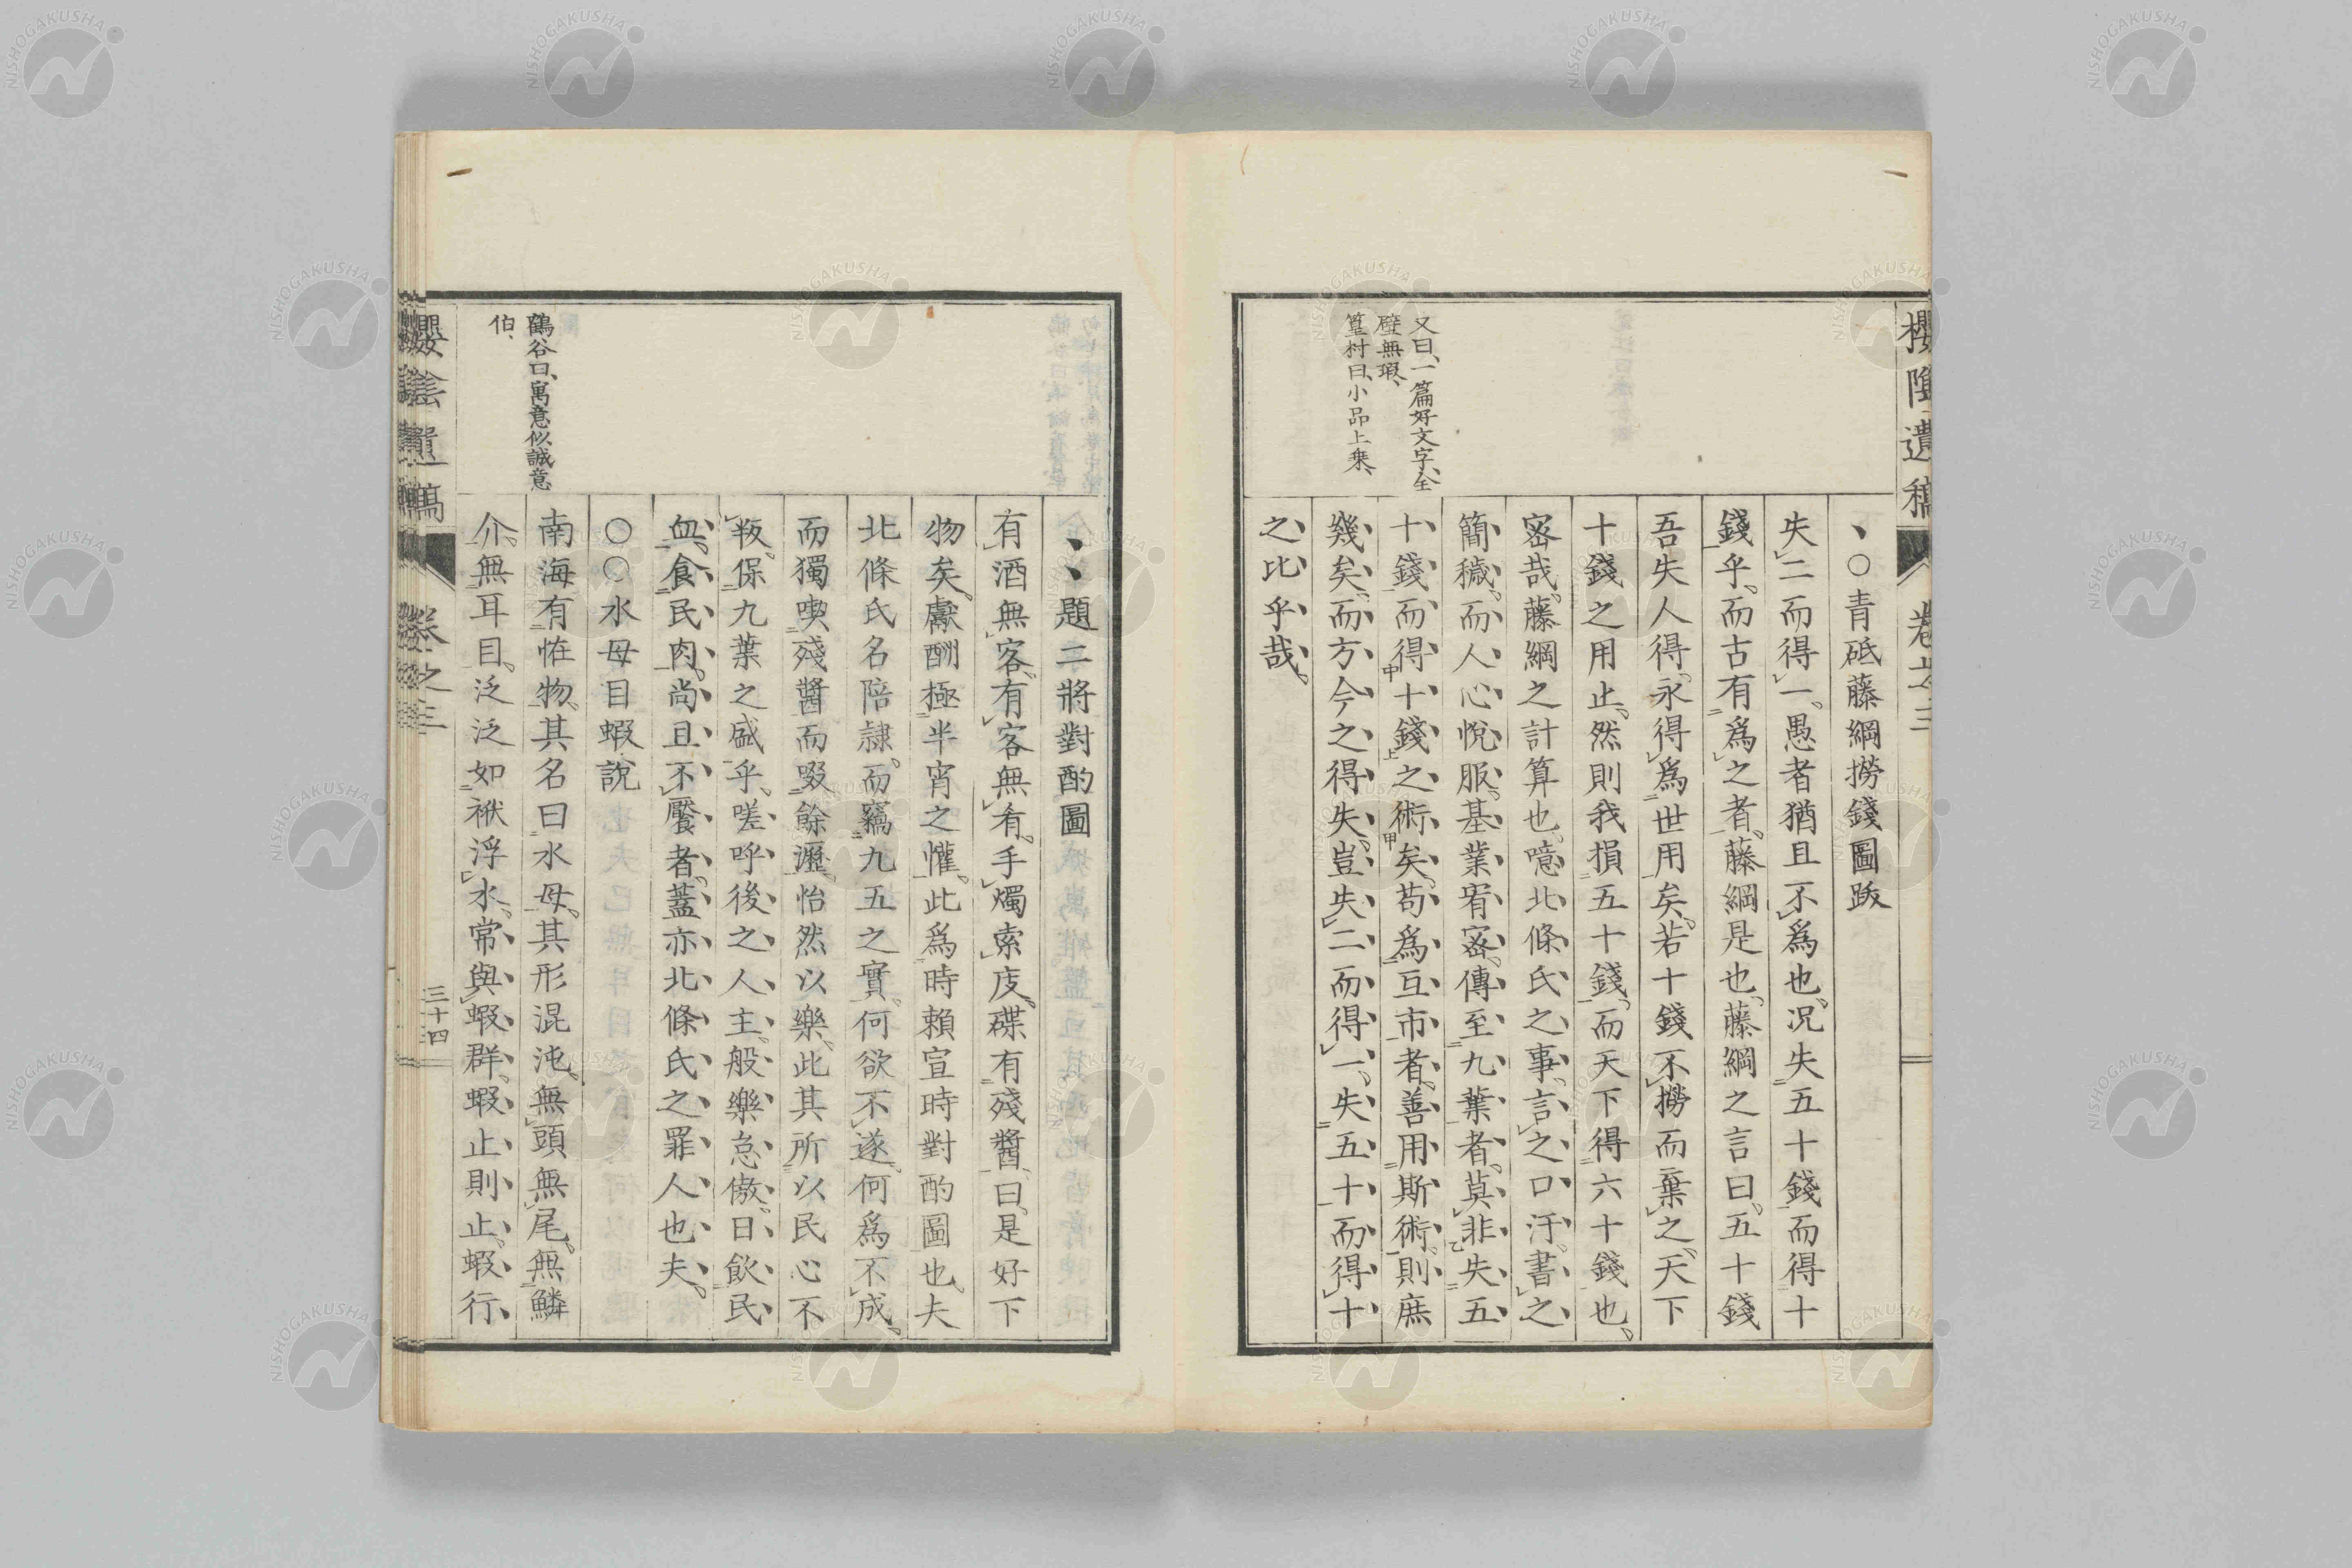 櫻陰遺稿　卷之三
又曰、一篇好文字、全
壁無瑕、
篁村曰、小品上乘、
、○青砥藤綱撈錢圖跋
失二而得一。愚者猶且不爲也、況失五十錢而得十
錢乎。而古有爲之者。藤綱是也。藤綱之言曰。五十錢
吾失人得。永得爲世用矣。若十錢不撈而棄之、天下
十錢之用止。然則我損五十錢。而天下得六十錢也、
密哉。藤綱之計算也。噫北條氏之事。言之口汗。書之
簡穢。而人心悅服。基業宥密。傳至九葉者。莫非失五
十錢而得十錢之術矣。苟爲互市者。善用斯術。則庶
幾矣。而方今之得失。豈失二而得一。失五十而得十
之比乎哉。
、、題二將對酌圖
有酒無客、有客無肴。手燭索庋。碟有殘醬。曰。是好下
物矣。獻酬極半宵之懽。此爲時賴宣時對酌圖也。夫
北條氏名陪隷。而竊九五之實。何欲不遂。何爲不成。
而獨喫殘醬而啜餘瀝。怡然以樂。此其所以民心不
叛。保九葉之盛乎。嗟呼後之人主。般樂怠傲。日飲民
血。食民肉。尚且不饜者。蓋亦北條氏之罪人也夫。
○○水母目蝦說
南海有恠物。其名曰水母。其形混沌。無頭無尾。無鱗
介。無耳目。泛泛如袱浮水。常與蝦群。蝦止則止。蝦行、
鶴谷曰、寓意似誠意
伯、
櫻陰遺稿　卷之三　三十四